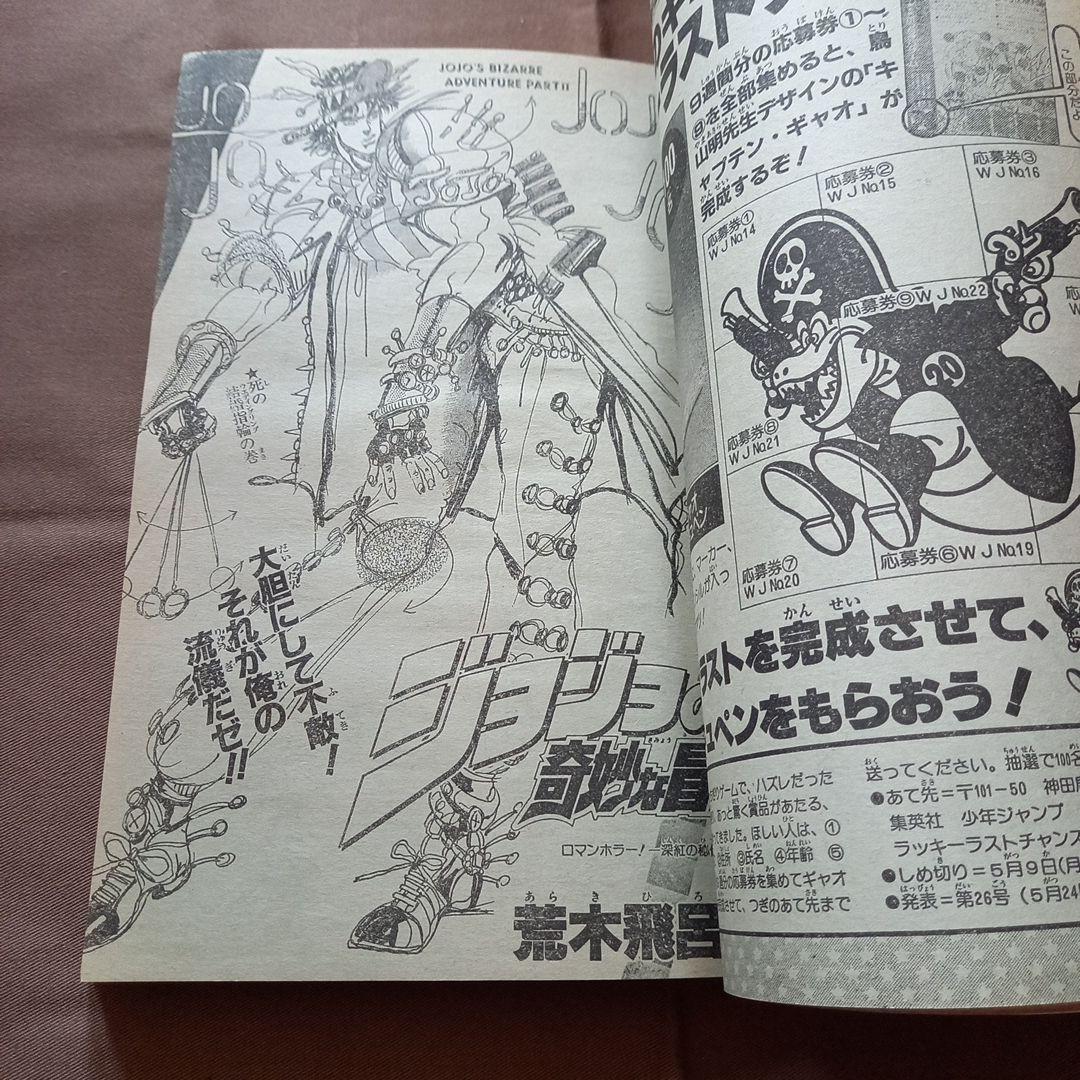 JOJO'S BIZARRE
ADVENTURE PART II
JOJO
JO
JOJO
★死の
結婚指輪の巻
大胆にして不敵！
それが俺の
流儀だゼ!!
ジョジョの
奇妙な冒
ロマンホラー！―深紅の秘
荒木飛呂
あらきひろ
9週間分の応募券①～
⑨を全部集めると、鳥
山明先生デザインの「キ
ャプテン・ギャオ」が
完成するぞ！
この部分だよ
応募券①
WJ No.14
応募券②
WJ No.15
応募券③
WJ No.16
応募券⑨WJ No.22
応募券⑧
WJ No.21
応募券⑦
WJ No.20
応募券⑥WJ No.19
20
マーカー、
ラストを完成させて、
ペンをもらおう！
ゲームで、ハズレだった
あっと驚く賞品があたる、
てきました。ほしい人は、①
②住所 ③氏名 ④年齢 ⑤
週分の応募券を集めてギャオ
させて、つぎのあて先まで
送ってください。抽選で100名
●あて先＝〒101-50 神田局
集英社 少年ジャンプ
ラッキーラストチャンス
●しめ切り＝5月9日(月
●発表＝第26号(5月24